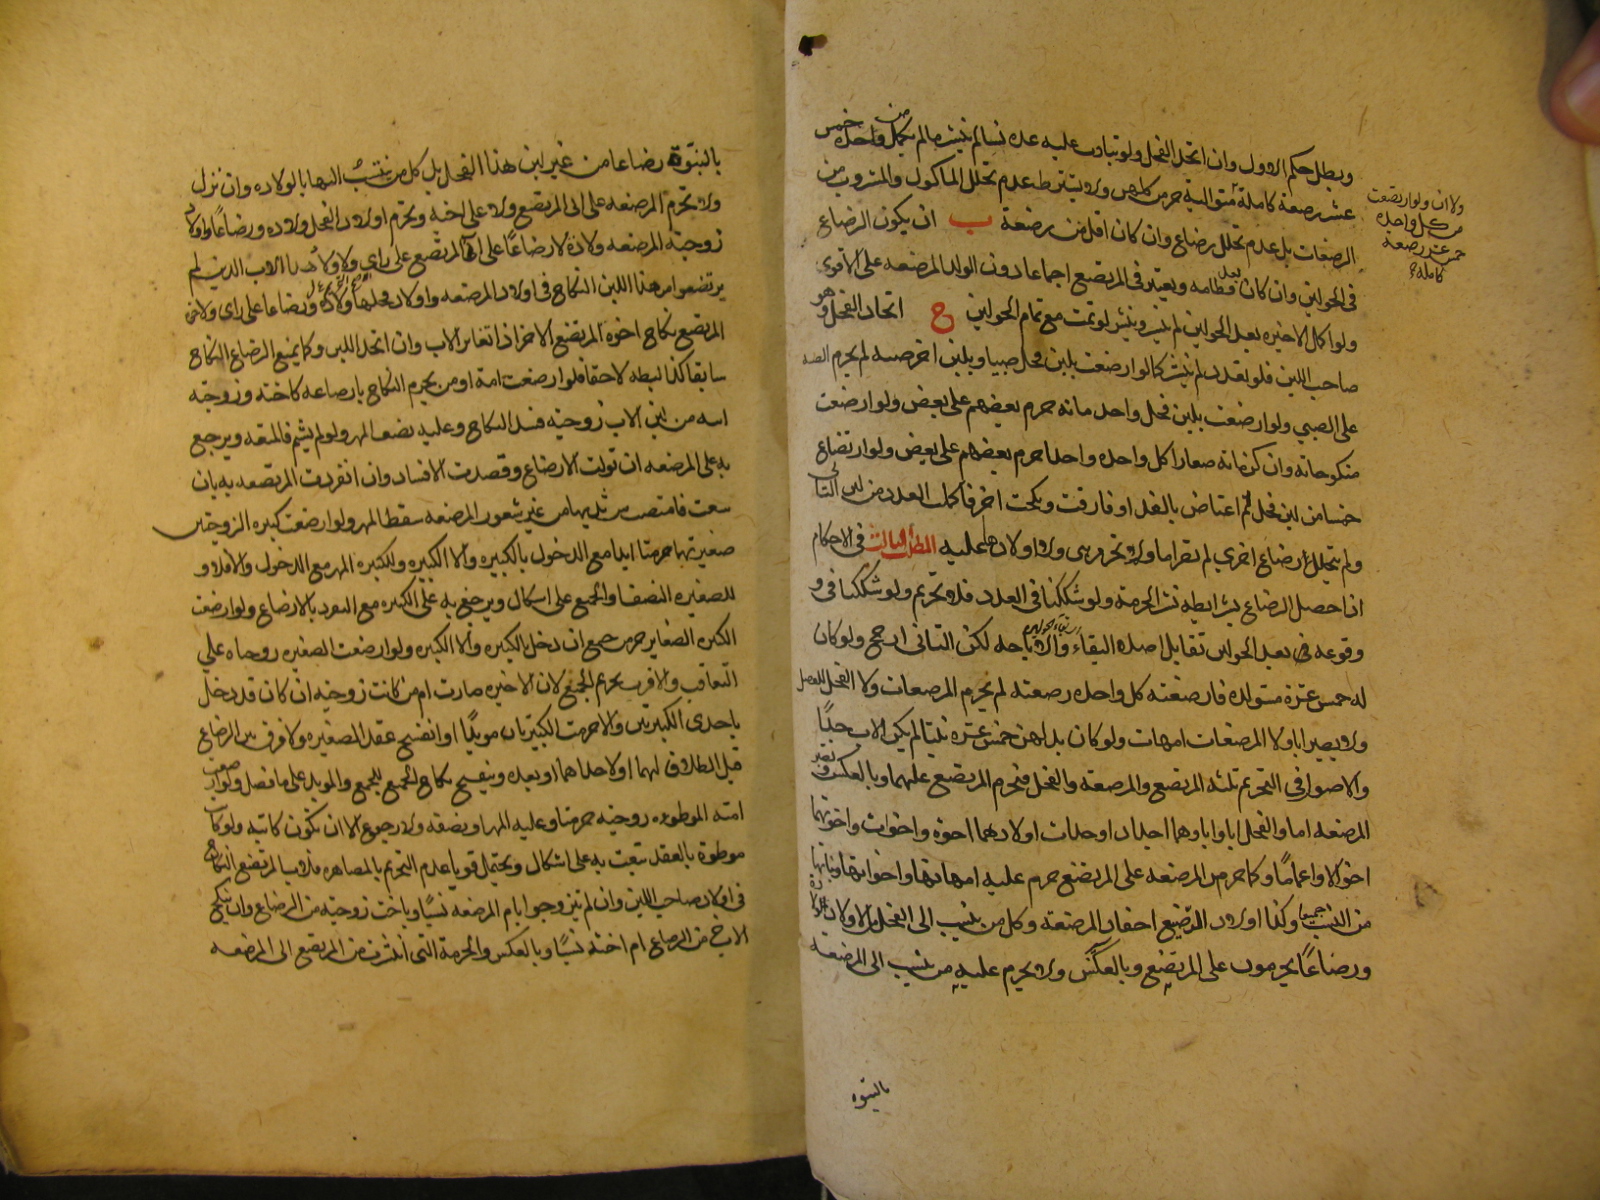 وبطل حكم الاول وان اتحد الفحل ولو تناوب عليه عدة نساء لم ينشر ما لم يكمل من واحدة خمس
عشر رضعة كاملة متوالية حرمن كلهن ولا يشترط عدم تخلل المأكول والمشروب بين
الرضعات بل عدم تخلل رضاع وان كان اقل من رضعة ب ان يكون الرضاع
في الحولين وان كان بعد فطامه ويعتبر في المرتضع اجماعا دون الولد المرضعه على الاقوى
ولو اكمل الاخيره بعد الحولين لم ينشر وينشر لو تمت مع تمام الحولين ج اتحاد الفحل وهو
صاحب اللبن فلو تعدد لم ينشر كما لو ارضعت بلبن فحل صبيا وبلبن اخر صبيه لم يحرم الصبيه
على الصبي ولو ارضعت بلبن فحل واحد مائة حرم بعضهم على بعض ولو ارضعت
منكوحاته وان كن مائة صغارا كل واحدة واحدا حرم بعضهم على بعض ولو ارتضاع
خمسا من لبن فحل ثم اعتاض بالغذا او فارقت ونكحت اخر فاكملت العدد من لبن الثاني
ولم يتخلل ارضاع اخرى لم تصر اما ولا تحرم هي ولا اولادها عليه المطلب الثالث في الاحكام
اذا حصل الرضاع بشرايطه نشر الحرمة ولو شككنا في العدد فلا تحريم ولو شككنا في
وقوعه بعد الحولين تقابل اصلا البقاء والاباحه لكن الثاني ارجح ولو كان
له خمس عشرة مستولدة فارضعته كل واحدة رضعته لم يحرم المرضعات ولا الفحل للفصل
ولا يصير ابا ولا المرضعات امهات ولو كان بدلهن خمس عشرة بنتا لم يكن الاب جدا
والاصول في التحريم ثلثه المرتضع والمرضعة والفحل فيحرم المرتضع عليهما وبالعكس وتصير
المرضعه اما والفحل ابا واباوهما اجدادا وجدات واولادهما اخوة واخوات واخوتهما
اخوالا واعماما وكما حرمت المرضعه على المرتضع حرم عليه امهاتها واخواتها وبناتها
من النسب وكذا اولاد الرضيع احفاد المرضعة وكل من ينسب الى الفحل من الاولاد ولادة
ورضاعا يحرمون على المرتضع وبالعكس ولا يحرم عليه من ينسب الى المرضعه
بالبنوه
ولا ان ولو ارتضعت
من كل واحدة
خمس عشر رضعة
كاملة
بالبنوة رضاعا من غير لبن هذا الفحل بل كل من ينتسب اليها بالولاده وان نزل
ولا تحرم المرضعه على ابي المرتضع ولا على اخيه ويحرم اولاد الفحل ولادة ورضاعا واولاد
زوجته المرضعه ولادة لا رضاعا على اب المرتضع على راي ولاولاد هذا الاب الذين لم
يرتضعوا من هذا اللبن النكاح في اولاد المرضعه واولاد فحلها ولادة ورضاعا على راى ولاخوة
المرتضع نكاح اخوة المرتضع الاخر اذا تغاير الاب وان اتحد اللبن وكما يمنع الرضاع النكاح
سابقا كذا يبطله لاحقا فلو ارضعت امه او من يحرم النكاح بارضاعه كاخته وزوجة
ابيه من لبن الاب زوجته فسد النكاح وعليه نصف المهر ولو لم يسم فالمتعه ويرجع
به على المرضعه ان تولت الارضاع وقصدت الافساد وان انفردت المرتضعه به بان
سعت فامتصت من ثديها من غير شعور المرضعه سقط المهر ولو ارضعت كبيره الزوجتين
صغيرتهما حرمتا ابدا مع الدخول بالكبيره والا الكبيره وللكبيره المهر مع الدخول والا فلا و
للصغيره النصف او الجميع على اشكال ويرجع به على الكبيره مع التفرد بالارضاع ولو ارضعت
الكبيره الصغاير حرمن جميع ان دخل بالكبيره والا الكبيره ولو ارضعت الصغيره زوجاه على
التعاقب والاقرب تحريم الجميع لان الاخيره صارت ام من كانت زوجته ان كان قد دخل
باحدى الكبيرتين والا حرمت الكبيرتان موبدا وانفسخ عقد الصغيره ولا فرق بين الرضاع
قبل الطلاق لهما او لاحداهما او بعده وينفسخ نكاح الجميع للجمع والموبد على ما فصل ولو ارضعت
امته الموطوءه زوجته حرمتا وعليه المهر او نصفه ولا رجوع الا ان تكون كاتبه ولو كانت
موطوة بالعقد تبعت به على اشكال ويحتمل قويا عدم التحريم بالمصاهره فلاب المرتضع النكاح
في اولاد صاحب اللبن وان لم يتزوج بام المرضعه نسبا وباخت زوجته من الرضاع وان ينكح
الاخ من الرضاع ام اخته نسبا وبالعكس والحرمة التي انتشرت من المرتضع الى المرضعه